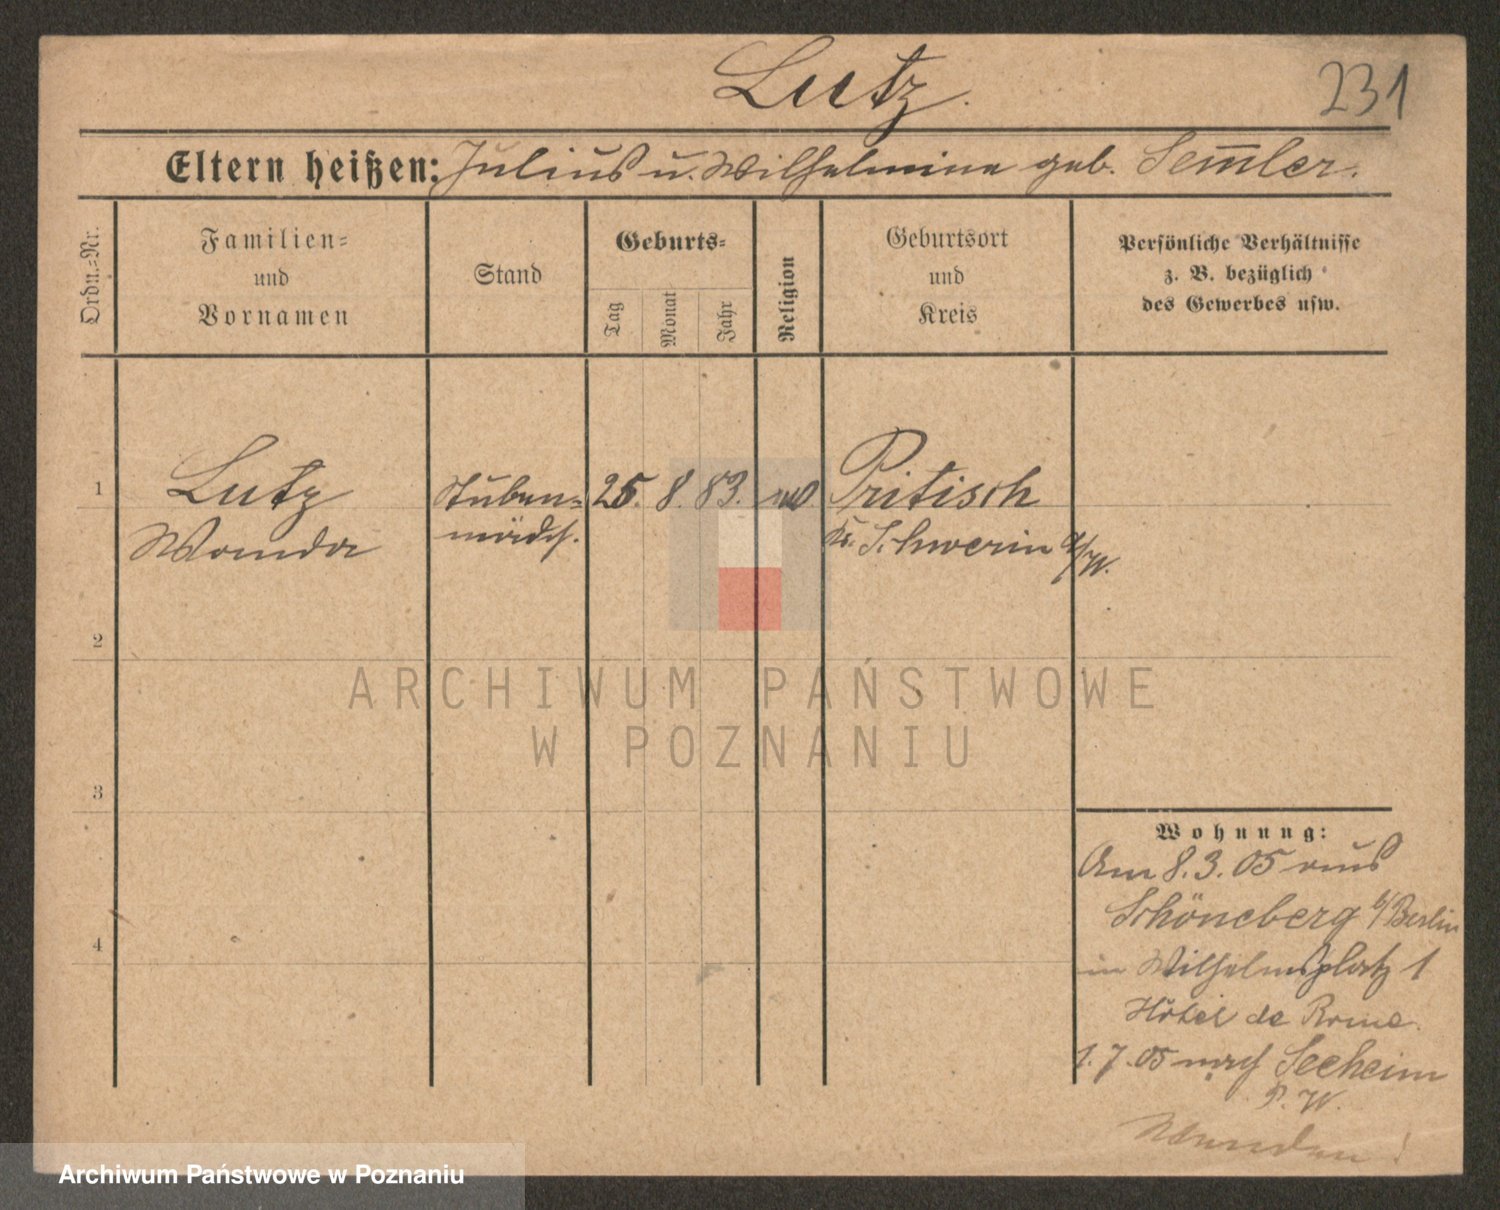 Lutz.
231
Eltern heißen: Julius u. Wilhelmine geb. Sem̅ler.
Ordn.-Nr.
Familien- und Vornamen
Stand
Geburts-
Tag
Monat
Jahr
Religion
Geburtsort und Kreis
Persönliche Verhältnisse
z. B. bezüglich
des Gewerbes usw.
1
Lutz
Wanda
Stuben-
mädch.
25. 8. 83.
Pritisch
Kr. Schwerin a/W.
2
ARCHIWUM PAŃSTWOWE
W POZNANIU
3
Wohnung:
Am 8.3.05 aus
Schöneberg b/Berlin
in Wilhelmsplatz 1
Hôtel de Rome.
1.7.05 nach Seeheim
4
Archiwum Państwowe w Poznaniu